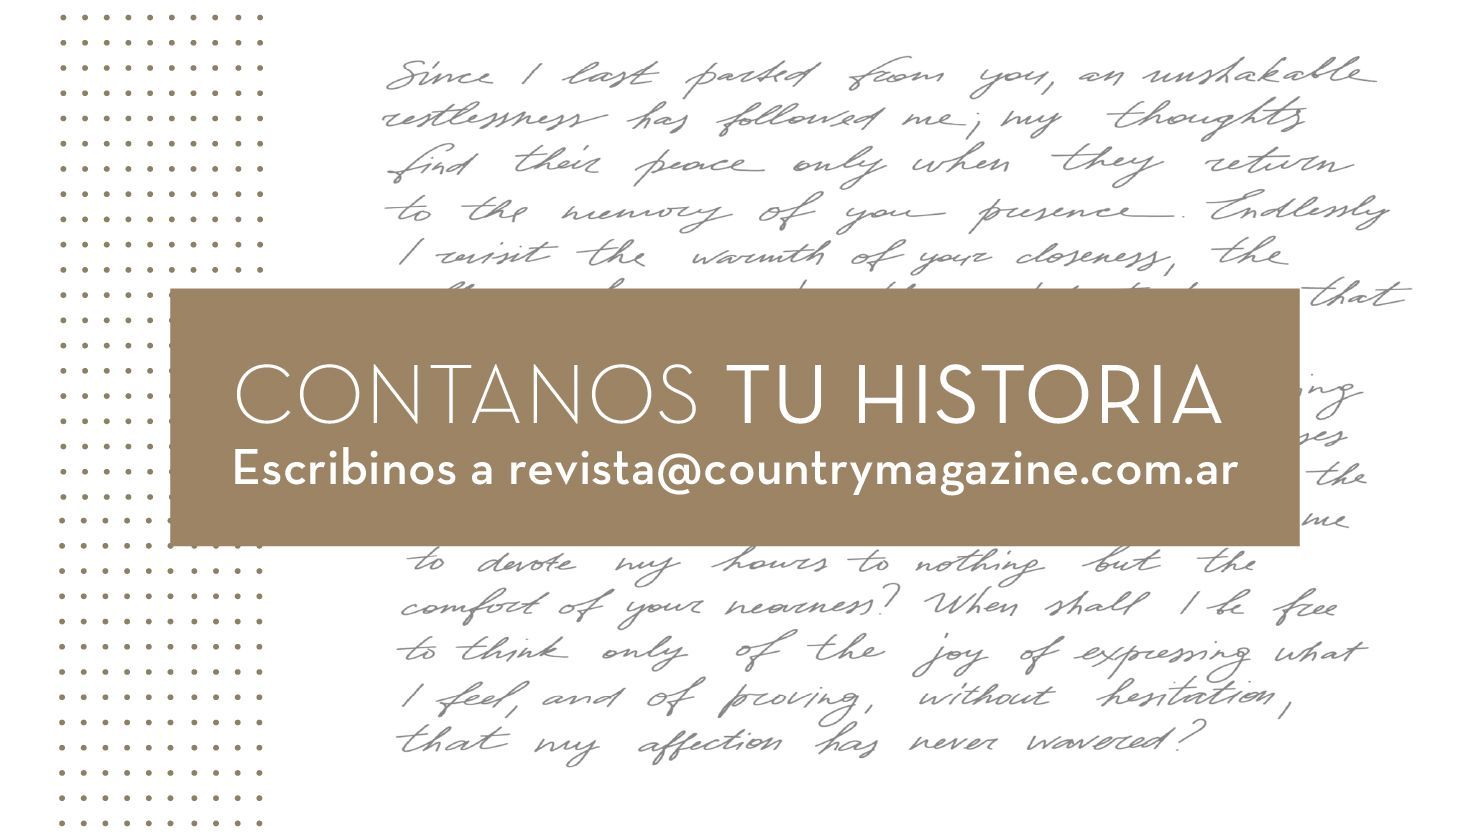 Since I last parted from you, an unshakable
restlessness has followed me; my thoughts
find their peace only when they return
to the memory of you presence. Endlessly
I revisit the warmth of your closeness, the
that
CONTANOS TU HISTORIA
Escribinos a revista@countrymagazine.com.ar
the
me
to devote my hours to nothing but the
comfort of your nearness? When shall I be free
to think only of the joy of expressing what
I feel, and of proving, without hesitation,
that my affection has never wavered?